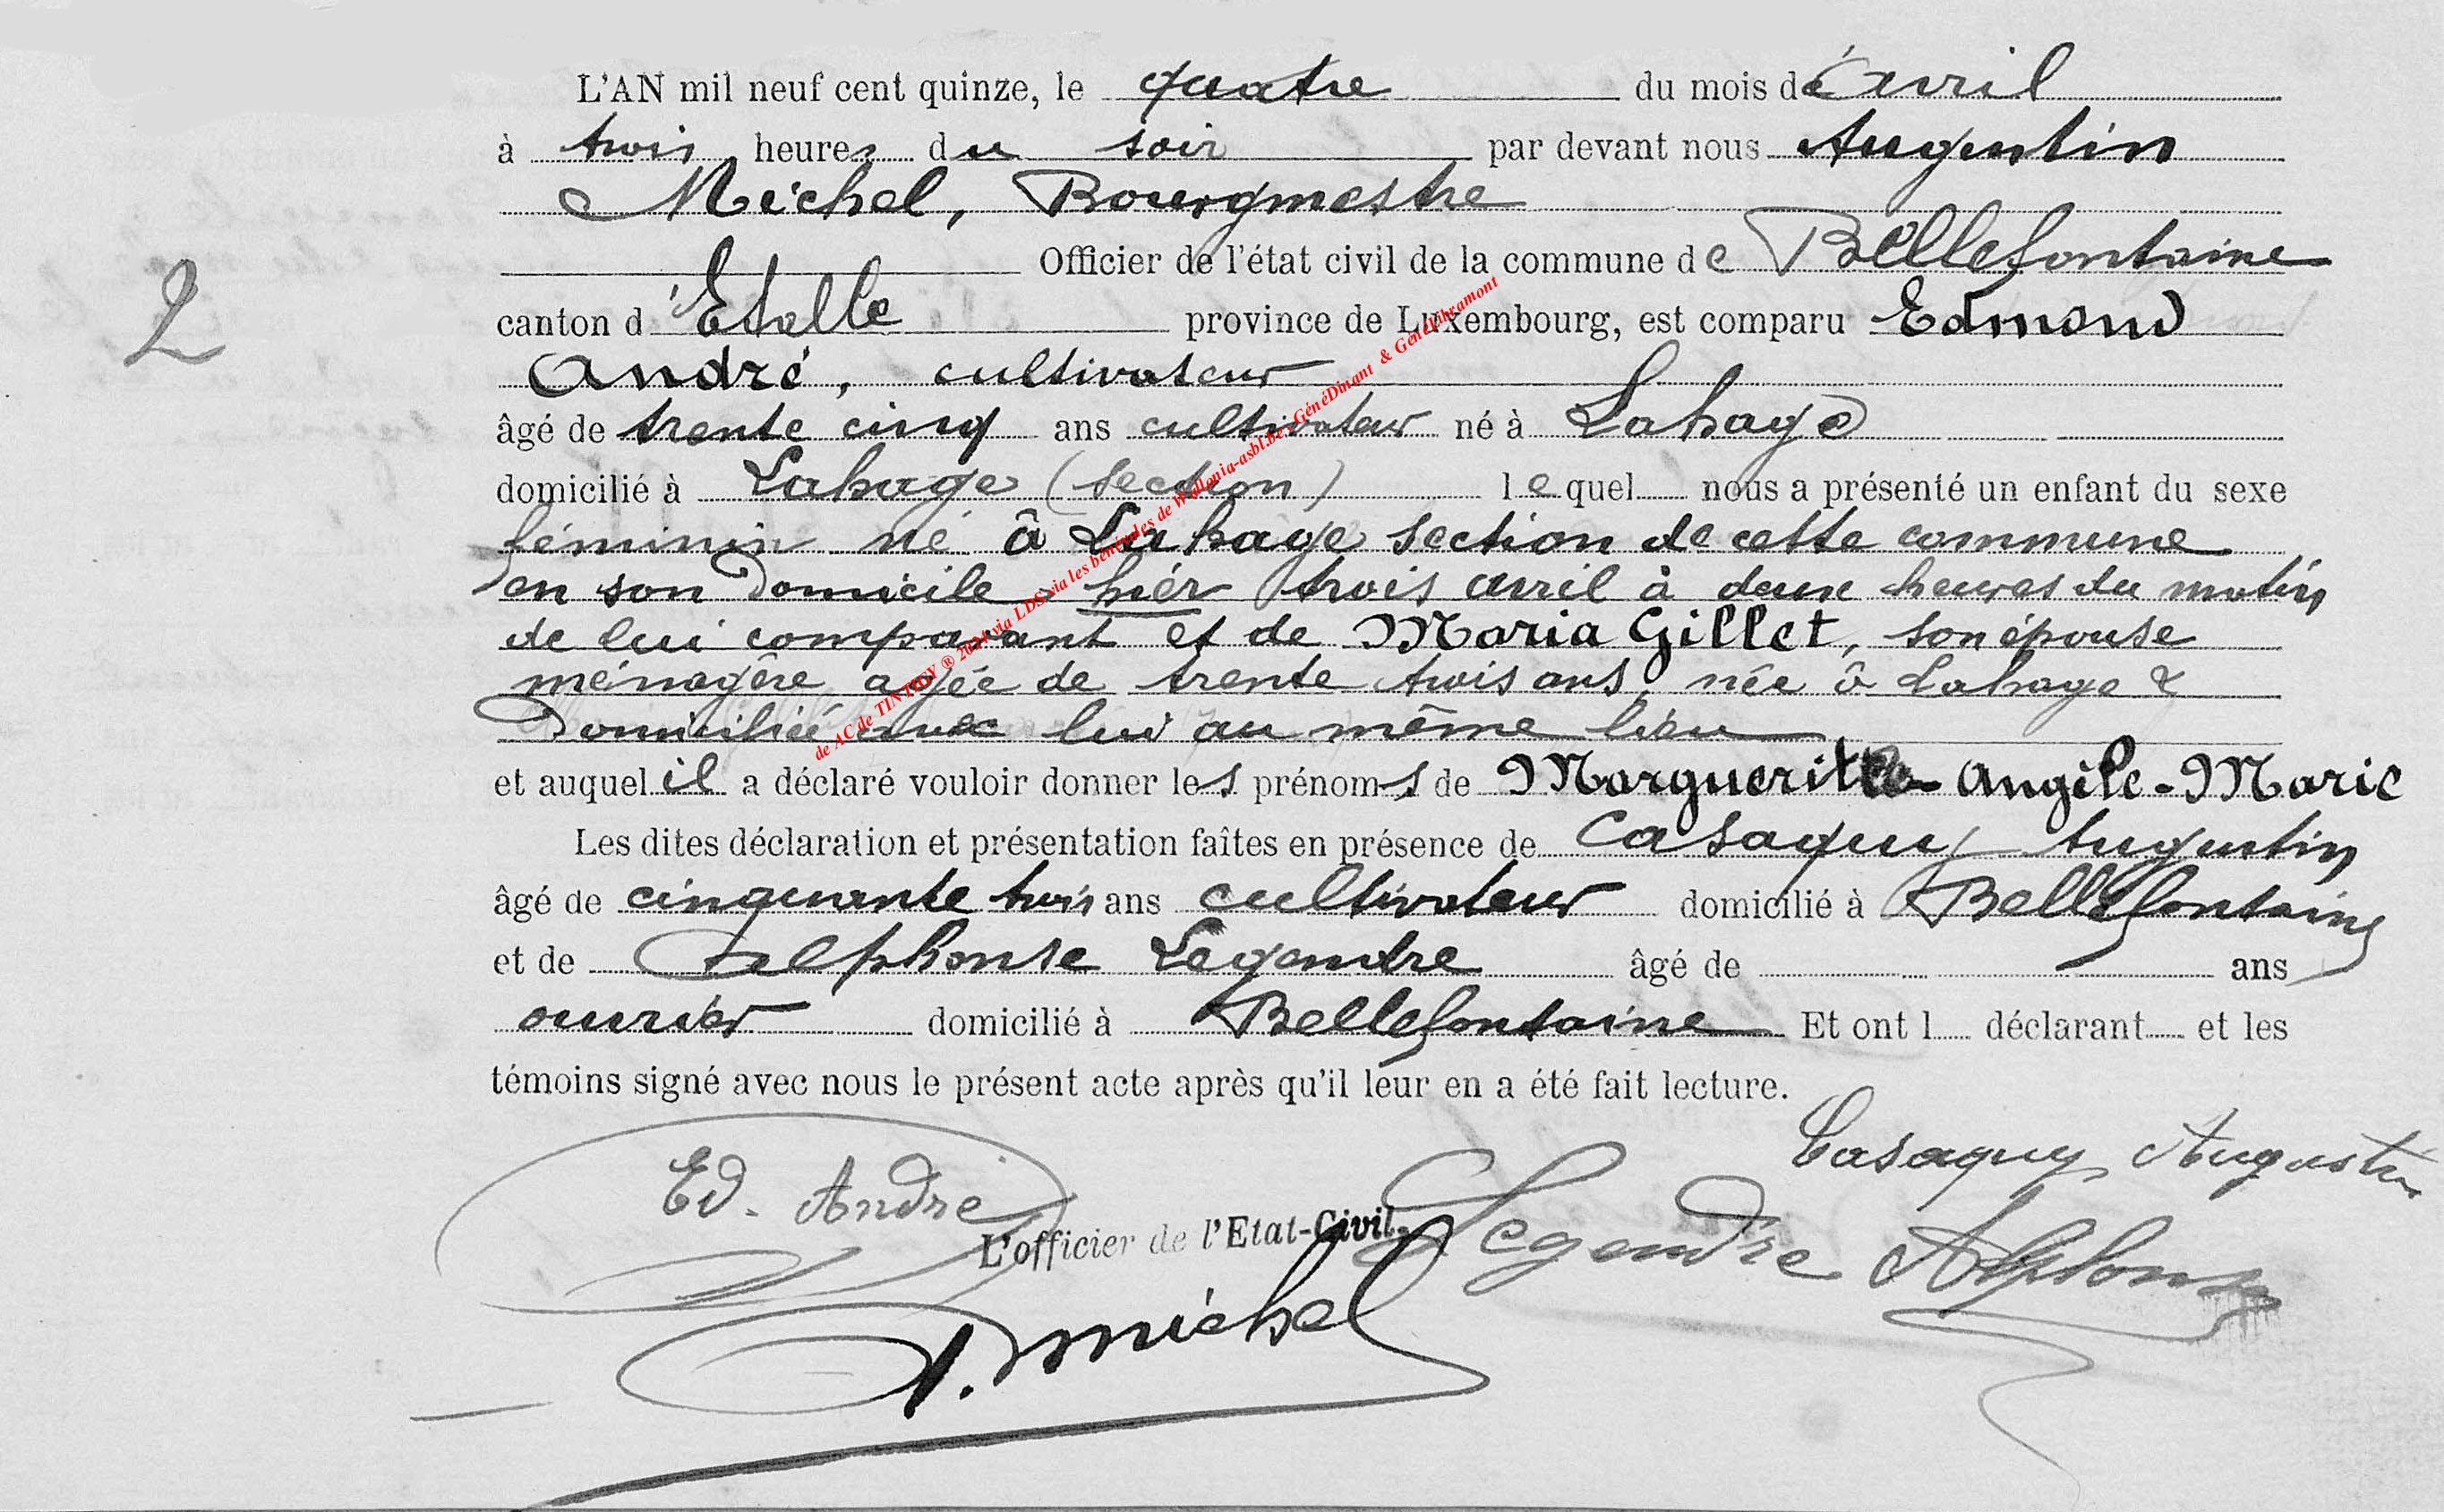 L'AN mil neuf cent quinze, le quatre du mois d'avril
à trois heures du soir par devant nous Augustin
Michel, Bourgmestre
Officier de l'état civil de la commune de Bellefontaine
2
canton d'Etalle province de Luxembourg, est comparu Edmond
André, cultivateur
âgé de trente cinq ans cultivateur né à Lahage
domicilié à Lahage (section) lequel nous a présenté un enfant du sexe
féminin né à Lahage section de cette commune
en son domicile hier trois avril à deux heures du matin
de lui comparant et de Maria Gillet, son épouse
ménagère, agée de trente trois ans, née à Lahage &
Domiciliée avec lui au même lieu
et auquel il a déclaré vouloir donner les prénoms de Marguerite-Angèle-Marie
Les dites déclaration et présentation faîtes en présence de Casaquy Augustin
âgé de cinquante trois ans cultivateur domicilié à Bellefontaine
et de Alphonse Legendre âgé de ans
ouvrier domicilié à Bellefontaine Et ont l déclarant et les
témoins signé avec nous le présent acte après qu'il leur en a été fait lecture.
Casaquy Augustin
Ed. André
L'officier de l'Etat-Civil, Legendre Alphons
A. Michel
de AC de TINTIGY ® 2024 via LDS via les bénévoles de Wallonia-asbl.be, GénéDinant & GénéLibramont